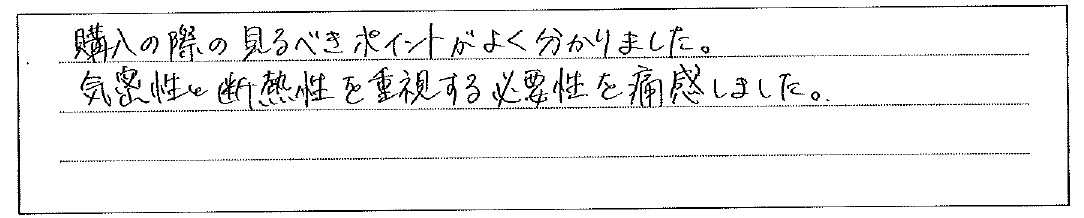 購入の際の見るべきポイントがよく分かりました。
気密性や断熱性を重視する必要性を痛感しました。